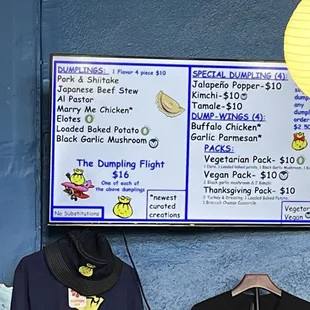 DUMPLINGS: 1 Flavor 4 piece $10
Pork & Shiitake
Japanese Beef Stew
Al Pastor
Marry Me Chicken*
Elotes
Loaded Baked Potato
Black Garlic Mushroom
The Dumpling Flight
$16
One of each of
the above dumplings
No Substitutions
*newest
curated
creations
SPECIAL DUMPLING (4):
Jalapeño Popper-$10
Kimchi-$10
Tamale-$10
DUMP-WINGS (4):
Buffalo Chicken*
Garlic Parmesan*
PACKS:
Vegetarian Pack- $10
Vegan Pack- $10
2 Black garlic mushroom & 2 Kimchi
Thanksgiving Pack- $10
2 Turkey & Dressing, 1 Loaded Baked Potato,
1 Broccoli Cheese Casserole
any
dump
order
$2.50
Vegan